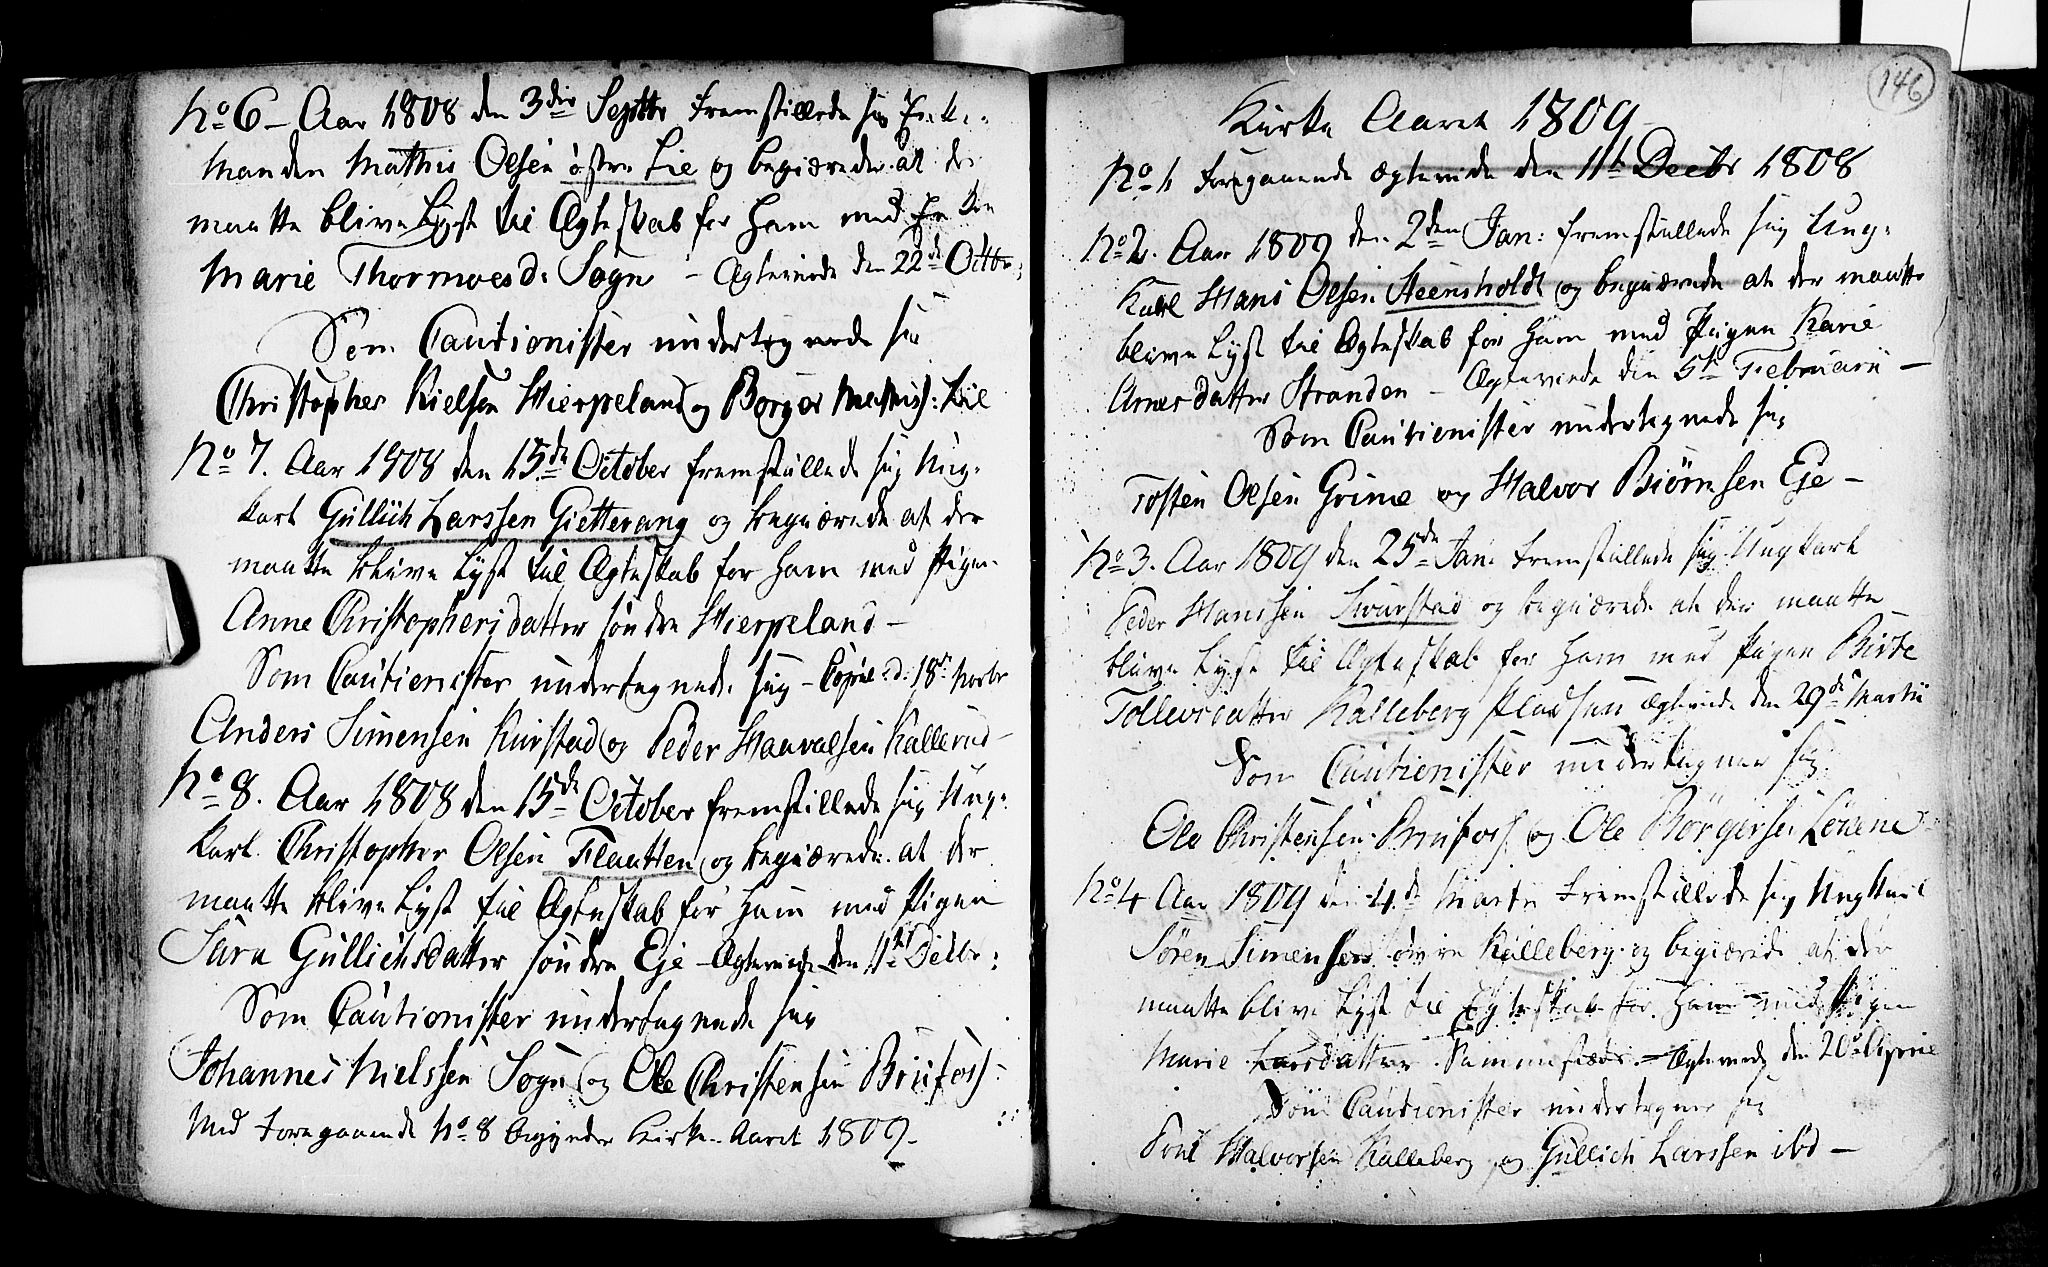 No 6 – Aar 1808 den 3die Septbr fremstillede sig Enke-
manden Mathis Olsen østre Lie og begiærede at der
maatte blive Lyst til Ægteskab for Ham med
Marie Thormoesd: Sogn – Ægteviede den 22de Octbr:
Som Cautionister undertegnede sig
Christopher Nielsen Hierpeland og Borger Mathiss: Lie
No 7. Aar 1808 den 15de October fremstillede sig Ung-
karl Gullich Larssen Gietterang og begiærede at der
maatte blive Lyst til Ægteskab for Ham med Pigen
Anne Christophersdatter søndre Hierpeland –
Som Cautionister undertegnede sig – Copul: d: 18de Novbr
Anders Simensen Kirstad og Peder Haavalsen Kallerud –
No 8. Aar 1808 den 15de October fremstillede sig Ung-
karl Christopher Olsen Flaatten og begiærede at der
maatte blive Lyst til Ægteskab for Ham med Pigen
Sara Gullichsdatter søndre Eje – Ægteviede den 11te Decbr:
Som Cautionister undertegnede sig
Johannes Nielssen Sogn og Ole Christensen Brufoss:
Med foregaaende No 8 begynder Kirke-Aaret 1809 –
146
Kirke Aaret 1809
No 1 foregaaende ægteviede den 11te Decbr 1808
No 2. Aar 1809 den 2den Jan: fremstillede sig Ung-
Karl Hans Olsen Steensholdt og begiærede at der maatte
blive Lyst til Ægteskab for Ham med Pigen Karie
Arnesdatter Stranden – Ægteviede den 5te Februarii –
Som Cautionister undertegnede sig
Tosten Olsen Grime og Halvor Biørnsen Eje –
No 3. Aar 1809 den 25de Jan: fremstillede sig Ungkarl
Peder Hanssen Svarstad og begiærede at der maatte
blive Lyst til Ægteskab for Ham med Pigen Birte
Tollevsdatter Kalleberg Pladsen ægteviede den 29de Martii
Som Cautionister undertegner sig
Ole Christensen Brufoss og Ole Børgersen
No 4 Aar 1809 den 4de Martii fremstillede sig Ungkarl
Søren Simensen øvre Kalleberg og begiærede at der
maatte blive Lyst til Egteskab for Ham med Pigen
Marie Larsdatter Sammesteds – Ægteviede den 20de Aprile
Som Cautionister undertegner sig
Poul Halvorsen Kalleberg og Gullich Larssen ibd –